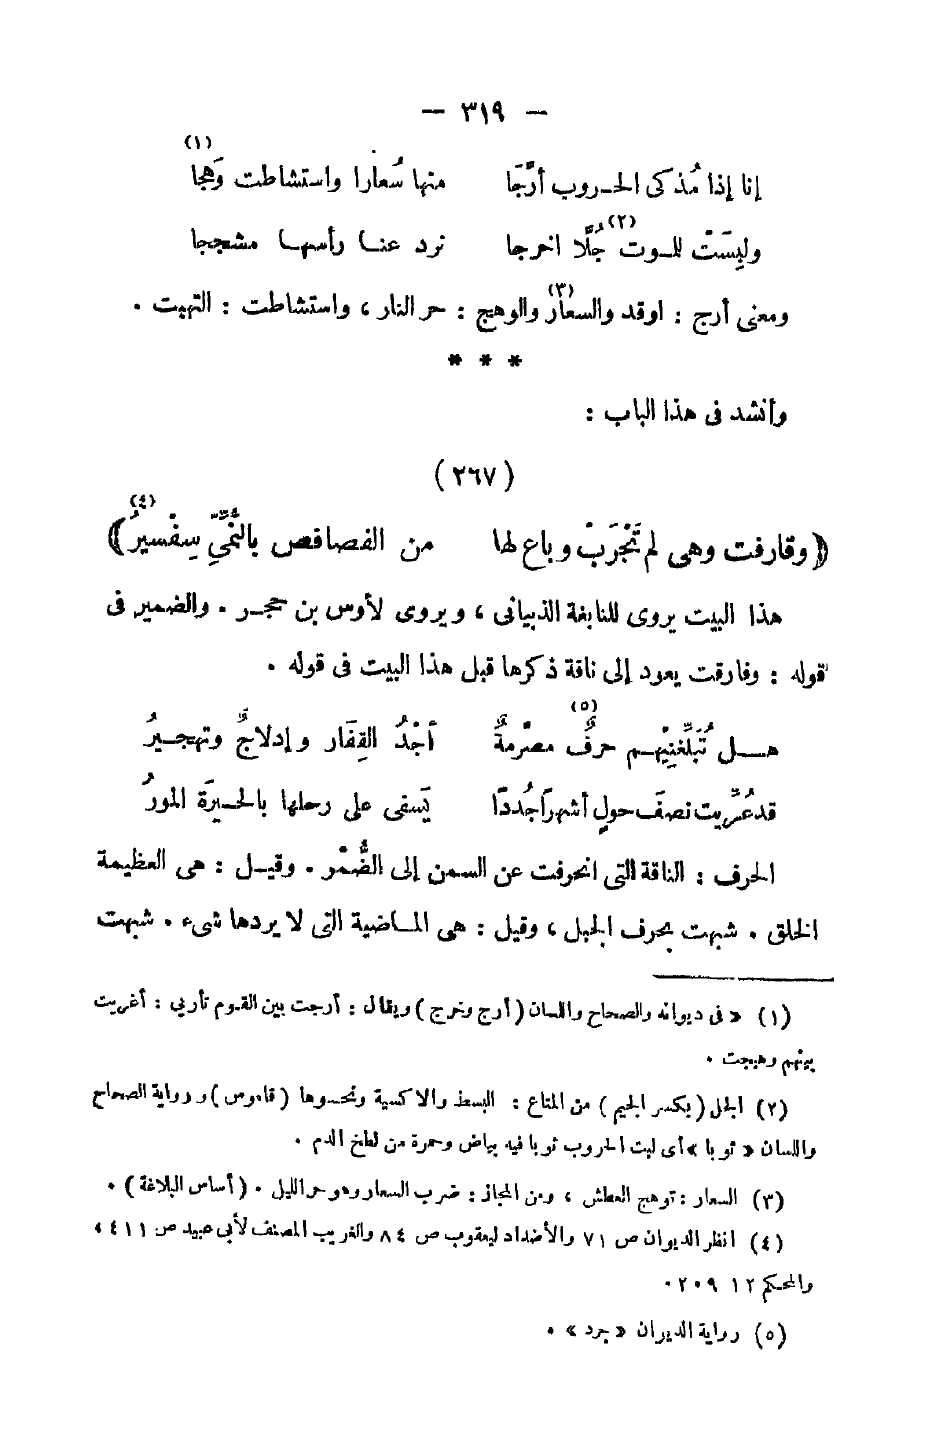 — ٣١٩ —
إنا إذا مُذكى الحروب أرَّجَا منها سُعارا واستشاطت وَهجا (١)
ولبِسَتْ للموت جُلًّا (٢) اخرجا نرد عنا رأسها مشججا
ومعنى أرج : اوقد والسعار (٣) والوهج : حر النار ، واستشاطت : التهبت .
* * *
وأنشد فى هذا الباب :
(٢٦٧)
﴿ وقارفت وهى لم تَجْرَبْ وباع لها من الفصافص بالنُّمِّىِّ سِفْسيرُ ﴾ (٤)
هذا البيت يروى للنابغة الذبيانى ، ويروى لأوس بن حجر . والضمير فى
قوله : وفارقت يعود إلى ناقة ذكرها قبل هذا البيت فى قوله .
هل تُبَلِّغَنِيْهم حرفٌ (٥) مصْرمةٌ أجْدُ القِفَار وإدلاجٌ وتهجيرُ
قد عُرِّيت نصفَ حولٍ أشهراً جُددًا يَسفى على رحلها بالحيرَة المورُ
الحرف : الناقة التى انحرفت عن السمن إلى الضُّمْر . وقيل : هى العظيمة
الخلق . شبهت بحرف الجبل ، وقيل : هى الماضية التى لا يردها شىء . شبهت
(١) « فى ديوانه والصحاح واللسان (أرج وخرج) ويقال : أرجت بين القوم تأريي : أغريت
بينهم وهيجت .
(٢) الجل (بكسر الجيم) من المتاع : البسط والاكسية ونحوها (قاموس) و رواية الصحاح
واللسان « ثوبا » أى لبت الحروب ثوبا فيه بياض وحمرة من لطخ الدم .
(٣) السعار : توهج العطش ، ومن المجاز : ضرب السعار وهو حر الليل . (أساس البلاغة) .
(٤) انظر الديوان ص ٧١ والأضداد ليعقوب ص ٨٤ والغريب المصنف لأبى عبيد ص ٤١١ ،
والمحكم ١٢ ٢٠٩ .
(٥) رواية الديران « جرد » .